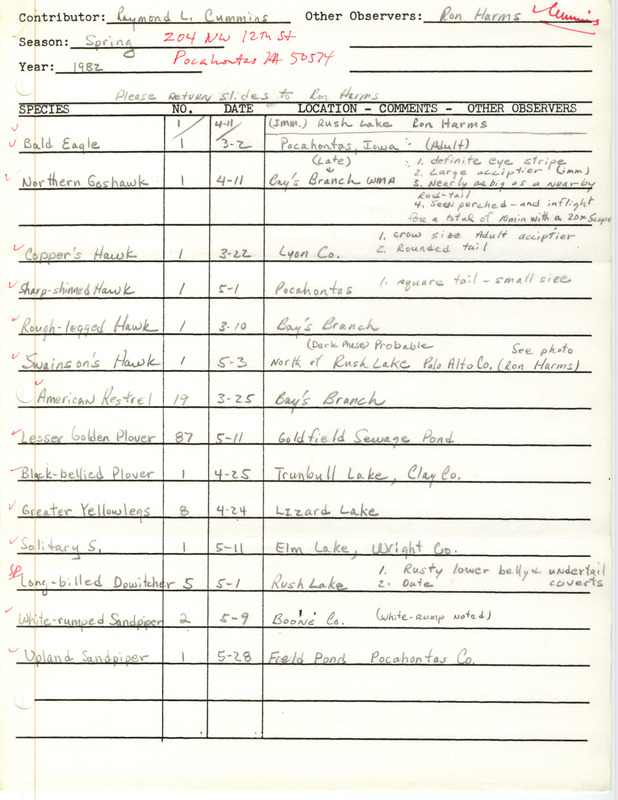 Contributor: Raymond L. Cummins Other Observers: Ron Harms Cummins
Season: Spring 204 NW 12th St
Year: 1982 Pocahontas IA 50574
Please return slides to Ron Harms
SPECIES NO. DATE LOCATION - COMMENTS - OTHER OBSERVERS
1 4-11 (Imm.) Rush Lake Ron Harms
Bald Eagle 1 3-2 Pocahontas, Iowa (Adult)
(Late) 1. definite eye stripe
2. Large accipter (imm)
Northern Goshawk 1 4-11 Bay's Branch WMA 3. Nearly as big as a nearby
Red-tail
4. Seen perched - and inflight
for a total of 10min with a 20x scope
1. crow size Adult accipter
Copper's Hawk 1 3-22 Lyon Co. 2. Rounded tail
Sharp-shinned Hawk 1 5-1 Pocahontas 1. square tail - small size
Rough-legged Hawk 1 3-10 Bay's Branch
(Dark Phase) Probable See photo
Swainson's Hawk 1 5-3 North of Rush Lake Palo Alto Co. (Ron Harms)
American Kestrel 19 3-25 Bay's Branch
Lesser Golden Plover 87 5-11 Goldfield Sewage Pond
Black-bellied Plover 1 4-25 Trunbull Lake, Clay Co.
Greater Yellowlegs 8 4-24 Lizard Lake
Solitary S. 1 5-11 Elm Lake, Wright Co.
1. Rusty lower belly & undertail
SP Long-billed Dowitcher 5 5-1 Rush Lake 2. Date coverts
White-rumped Sandpiper 2 5-9 Boone Co. (White-rump noted)
Upland Sandpiper 1 5-28 Field Pond Pocahontas Co.